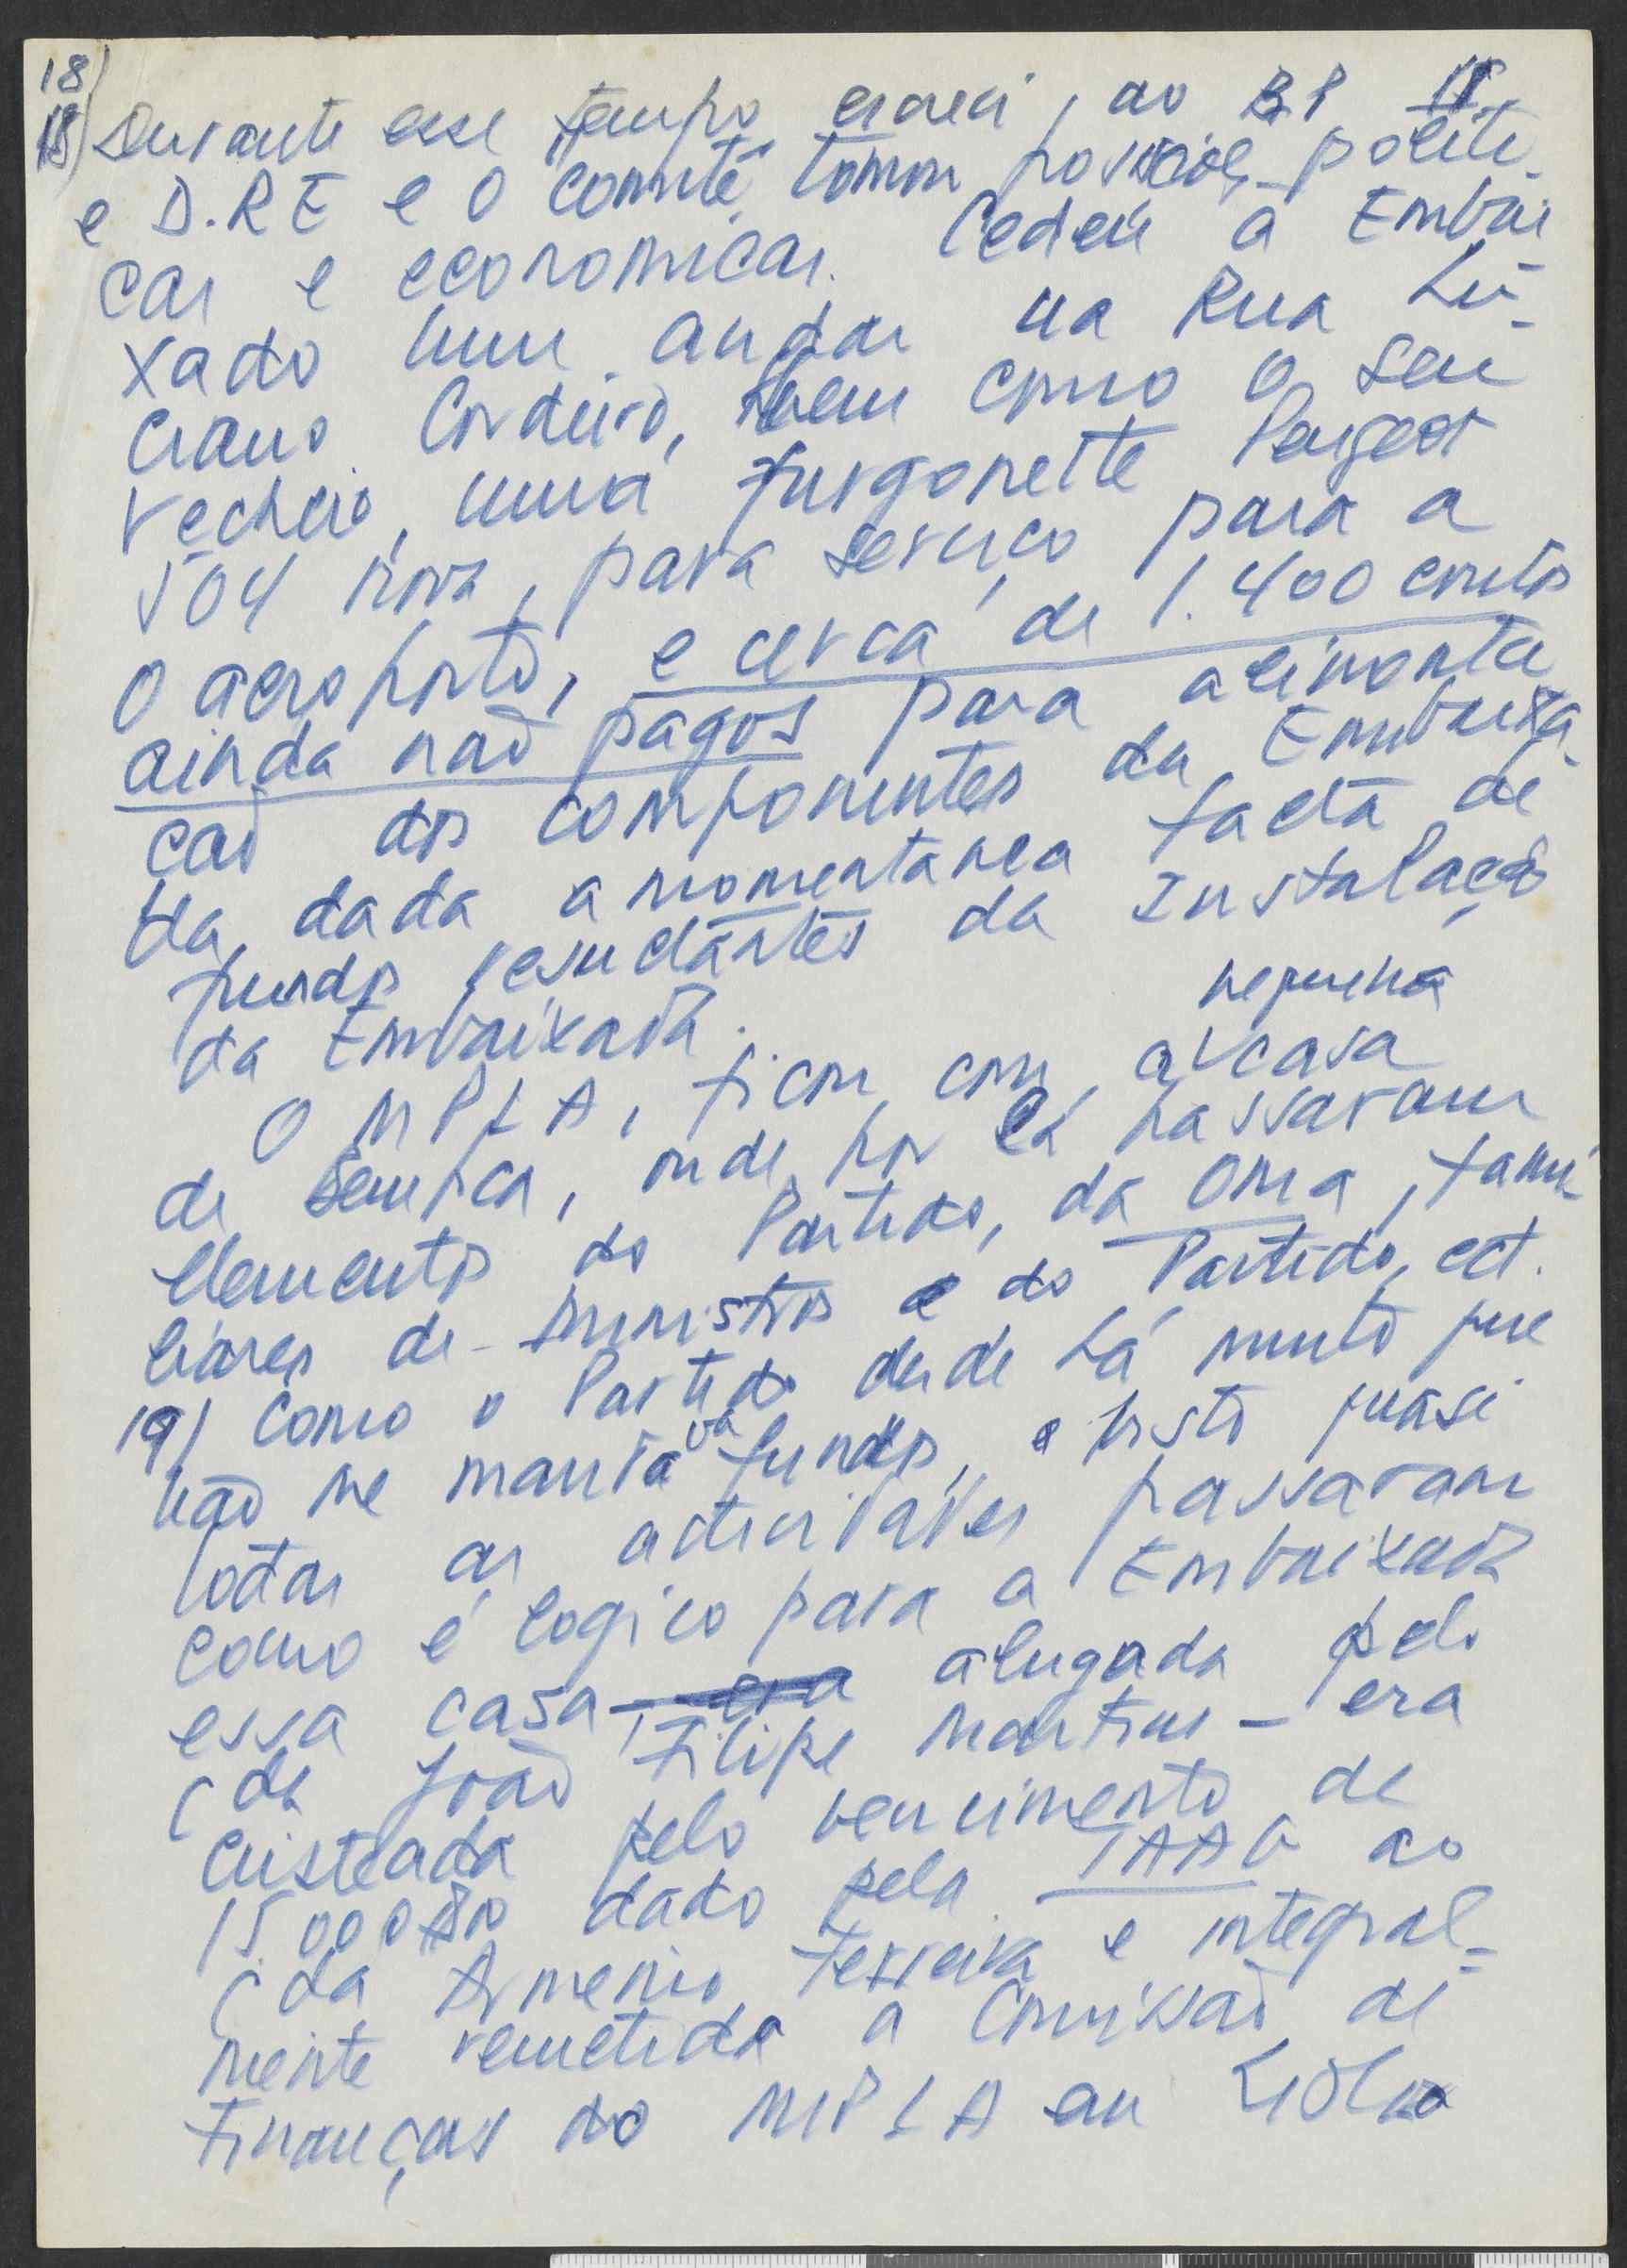 18)
18) Durante esse tempo, escrevi, ao BP
e D.R.E e o Comité tomou posições politi-
cas e economicas. Cedeu a Embai
xada um andar na Rua Lu-
ciano Cordeiro, bem como o seu
recheio, uma furgonette Peugeot
504 nova, para serviço para a
o aeroporto, e cerca de 1.400 contos
ainda não pagos para alimenta
ção dos componentes da Embaixa
da, dada a momentanea falta de
fundos resultantes da Instalação
da Embaixada.
pequena
O MPLA, ficou com, a casa
de Benfica, onde por lá passaram
elementos do Partido, da OMA, fami-
liares de ministros e do Partido, ect.
19) Como o Partido desde há muito que
não me manda va fundos, e visto quasi
todas as actividades passaram
como é logico para a Embaixada
essa casa - era alugada pelo
Cda João Filipe Martins - era
custeada pelo vencimento de
15.000$00 dado pela TAAG ao
Cda Armenio Ferreira e integral-
mente remetida a Comissão de
Finanças do MPLA em Lisboa